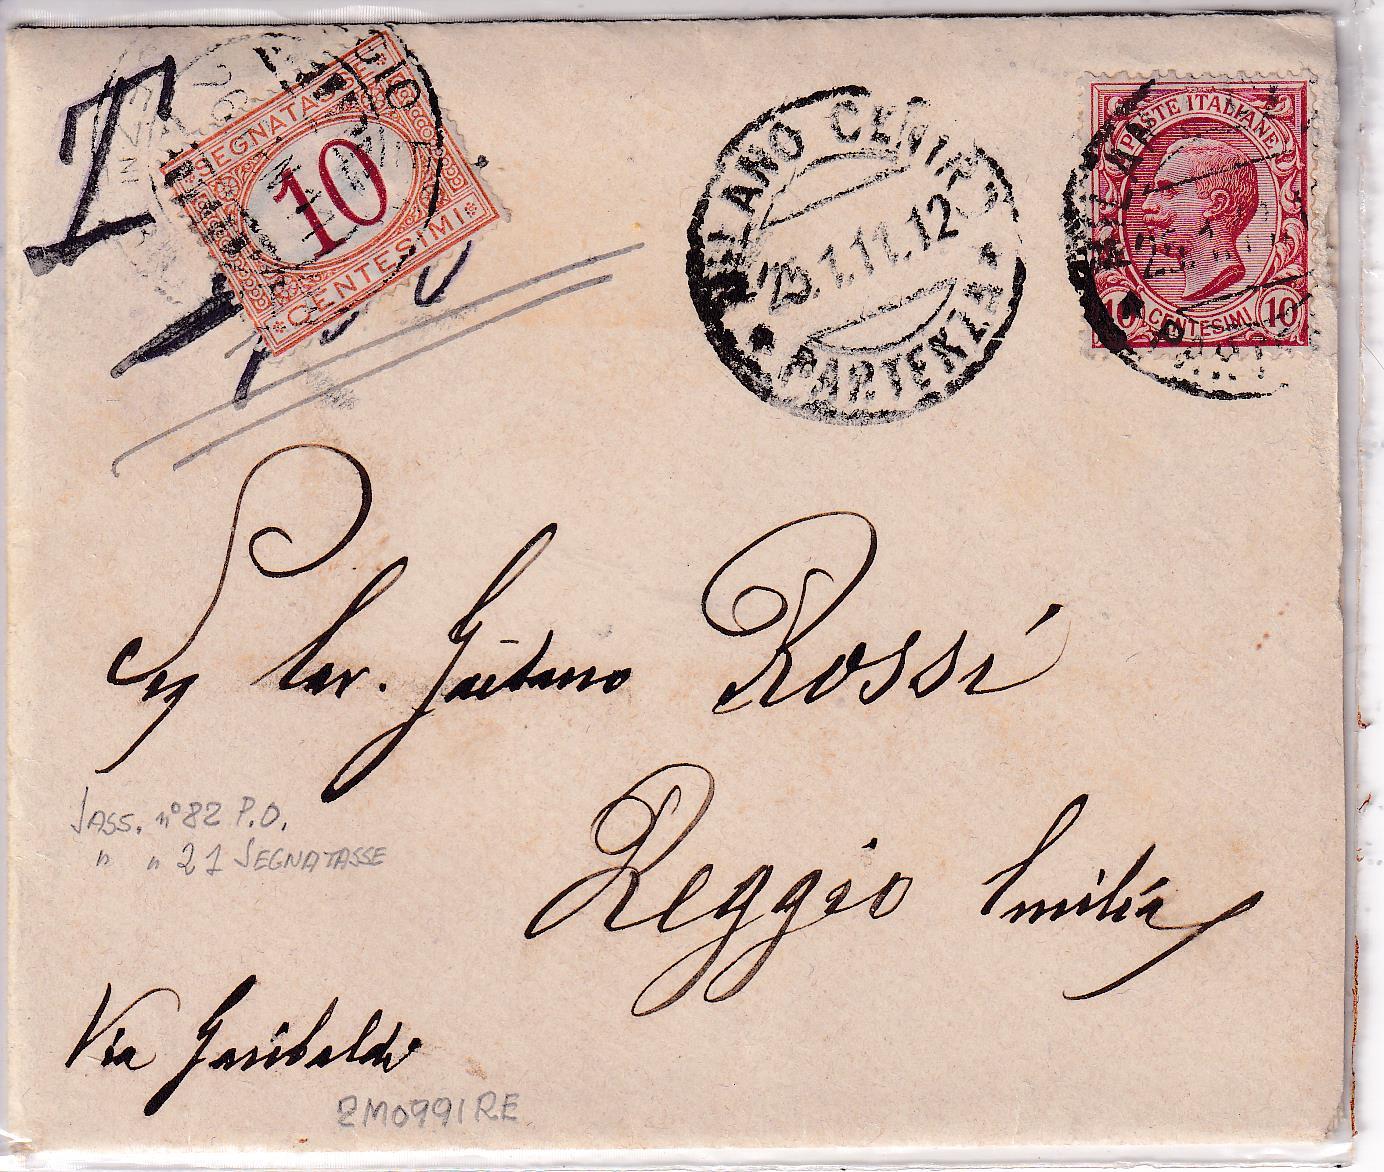 T
SEGNATASSE
10
CENTESIMI
MILANO CENTRO
25.1.11.12
* PARTENZA *
POSTE ITALIANE
10 CENTESIMI 10
MILANO
25.1.11
Cav. Gaetano Rossi
Reggio Emilia
SASS. n° 82 P.O.
" " 21 SEGNATASSE
Via Garibaldi
2M0991RE